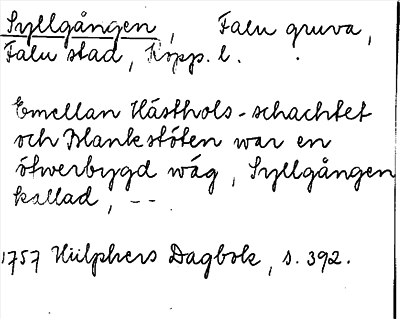 Syllgången, Falu gruva,
Falu stad, Kopp. l.
Emellan Hästhols-schachtet
och Blankstöten war en
öfwerbygd wäg, Syllgången
kallad, --
1757 Hülphers Dagbok, s. 392.